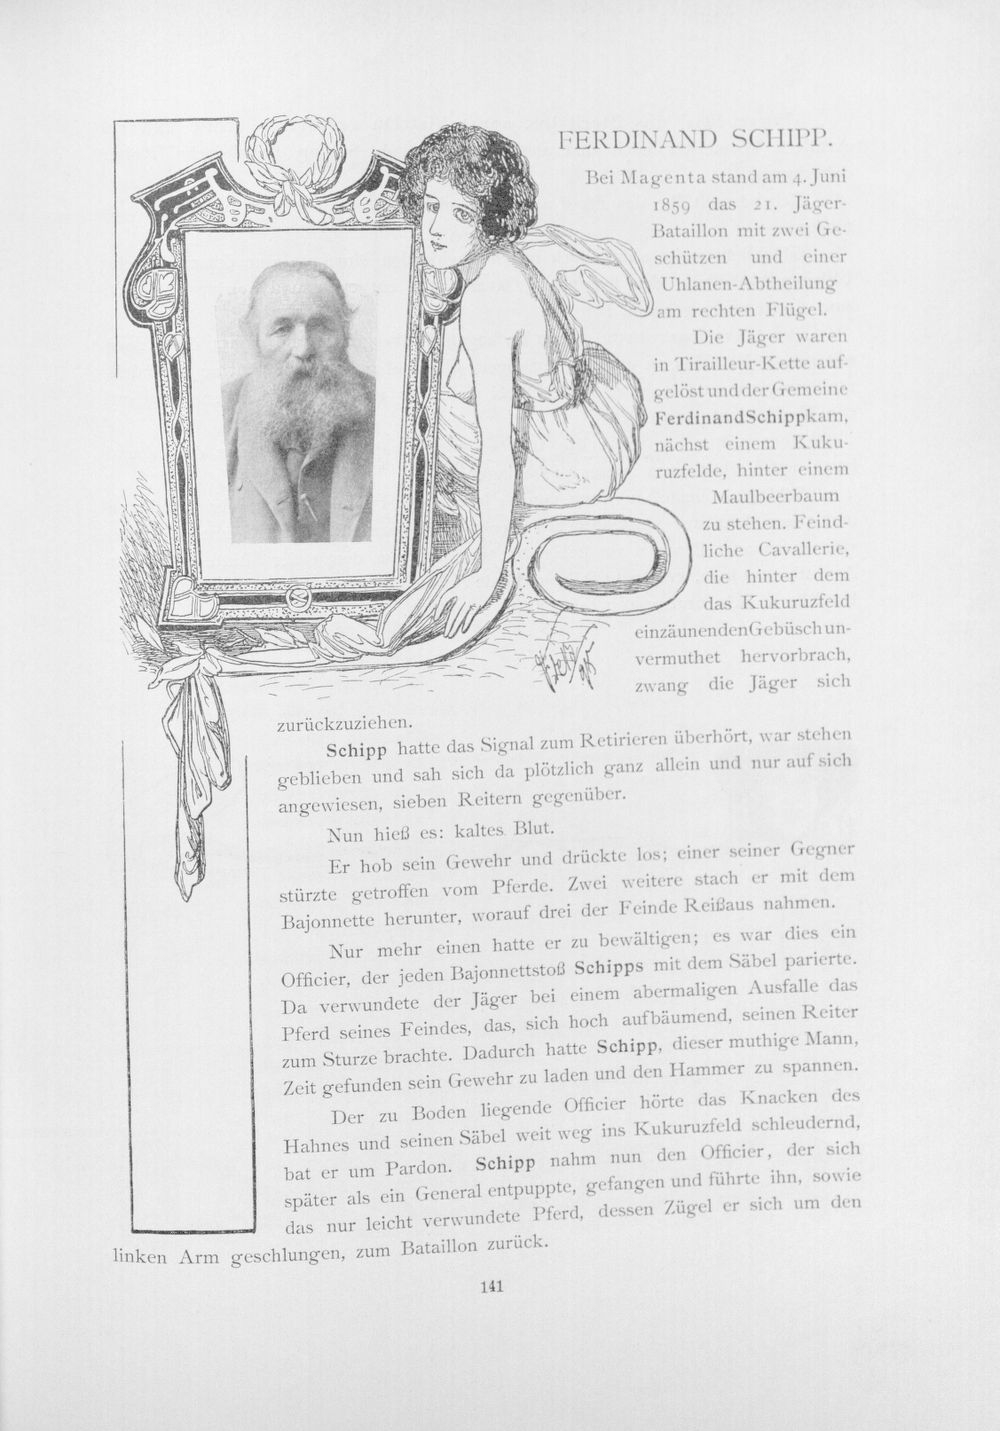 FERDINAND SCHIPP.
Bei Magenta stand am 4. Juni
1859 das 21. Jäger-
Bataillon mit zwei Ge-
schützen und einer
Uhlanen-Abtheilung
am rechten Flügel.
Die Jäger waren
in Tirailleur-Kette auf-
gelöst und der Gemeine
Ferdinand Schipp kam,
nächst einem Kuku-
ruzfelde, hinter einem
Maulbeerbaum
zu stehen. Feind-
liche Cavallerie,
die hinter dem
das Kukuruzfeld
einzäunenden Gebüsch un-
vermuthet hervorbrach,
zwang die Jäger sich
zurückzuziehen.
Schipp hatte das Signal zum Retirieren überhört, war stehen
geblieben und sah sich da plötzlich ganz allein und nur auf sich
angewiesen, sieben Reitern gegenüber.
Nun hieß es: kaltes Blut.
Er hob sein Gewehr und drückte los; einer seiner Gegner
stürzte getroffen vom Pferde. Zwei weitere stach er mit dem
Bajonnette herunter, worauf drei der Feinde Reißaus nahmen.
Nur mehr einen hatte er zu bewältigen; es war dies ein
Officier, der jeden Bajonnettstoß Schipps mit dem Säbel parierte.
Da verwundete der Jäger bei einem abermaligen Ausfalle das
Pferd seines Feindes, das, sich hoch aufbäumend, seinen Reiter
zum Sturze brachte. Dadurch hatte Schipp, dieser muthige Mann,
Zeit gefunden sein Gewehr zu laden und den Hammer zu spannen.
Der zu Boden liegende Officier hörte das Knacken des
Hahnes und seinen Säbel weit weg ins Kukuruzfeld schleudernd,
bat er um Pardon. Schipp nahm nun den Officier, der sich
später als ein General entpuppte, gefangen und führte ihn, sowie
das nur leicht verwundete Pferd, dessen Zügel er sich um den
linken Arm geschlungen, zum Bataillon zurück.
141